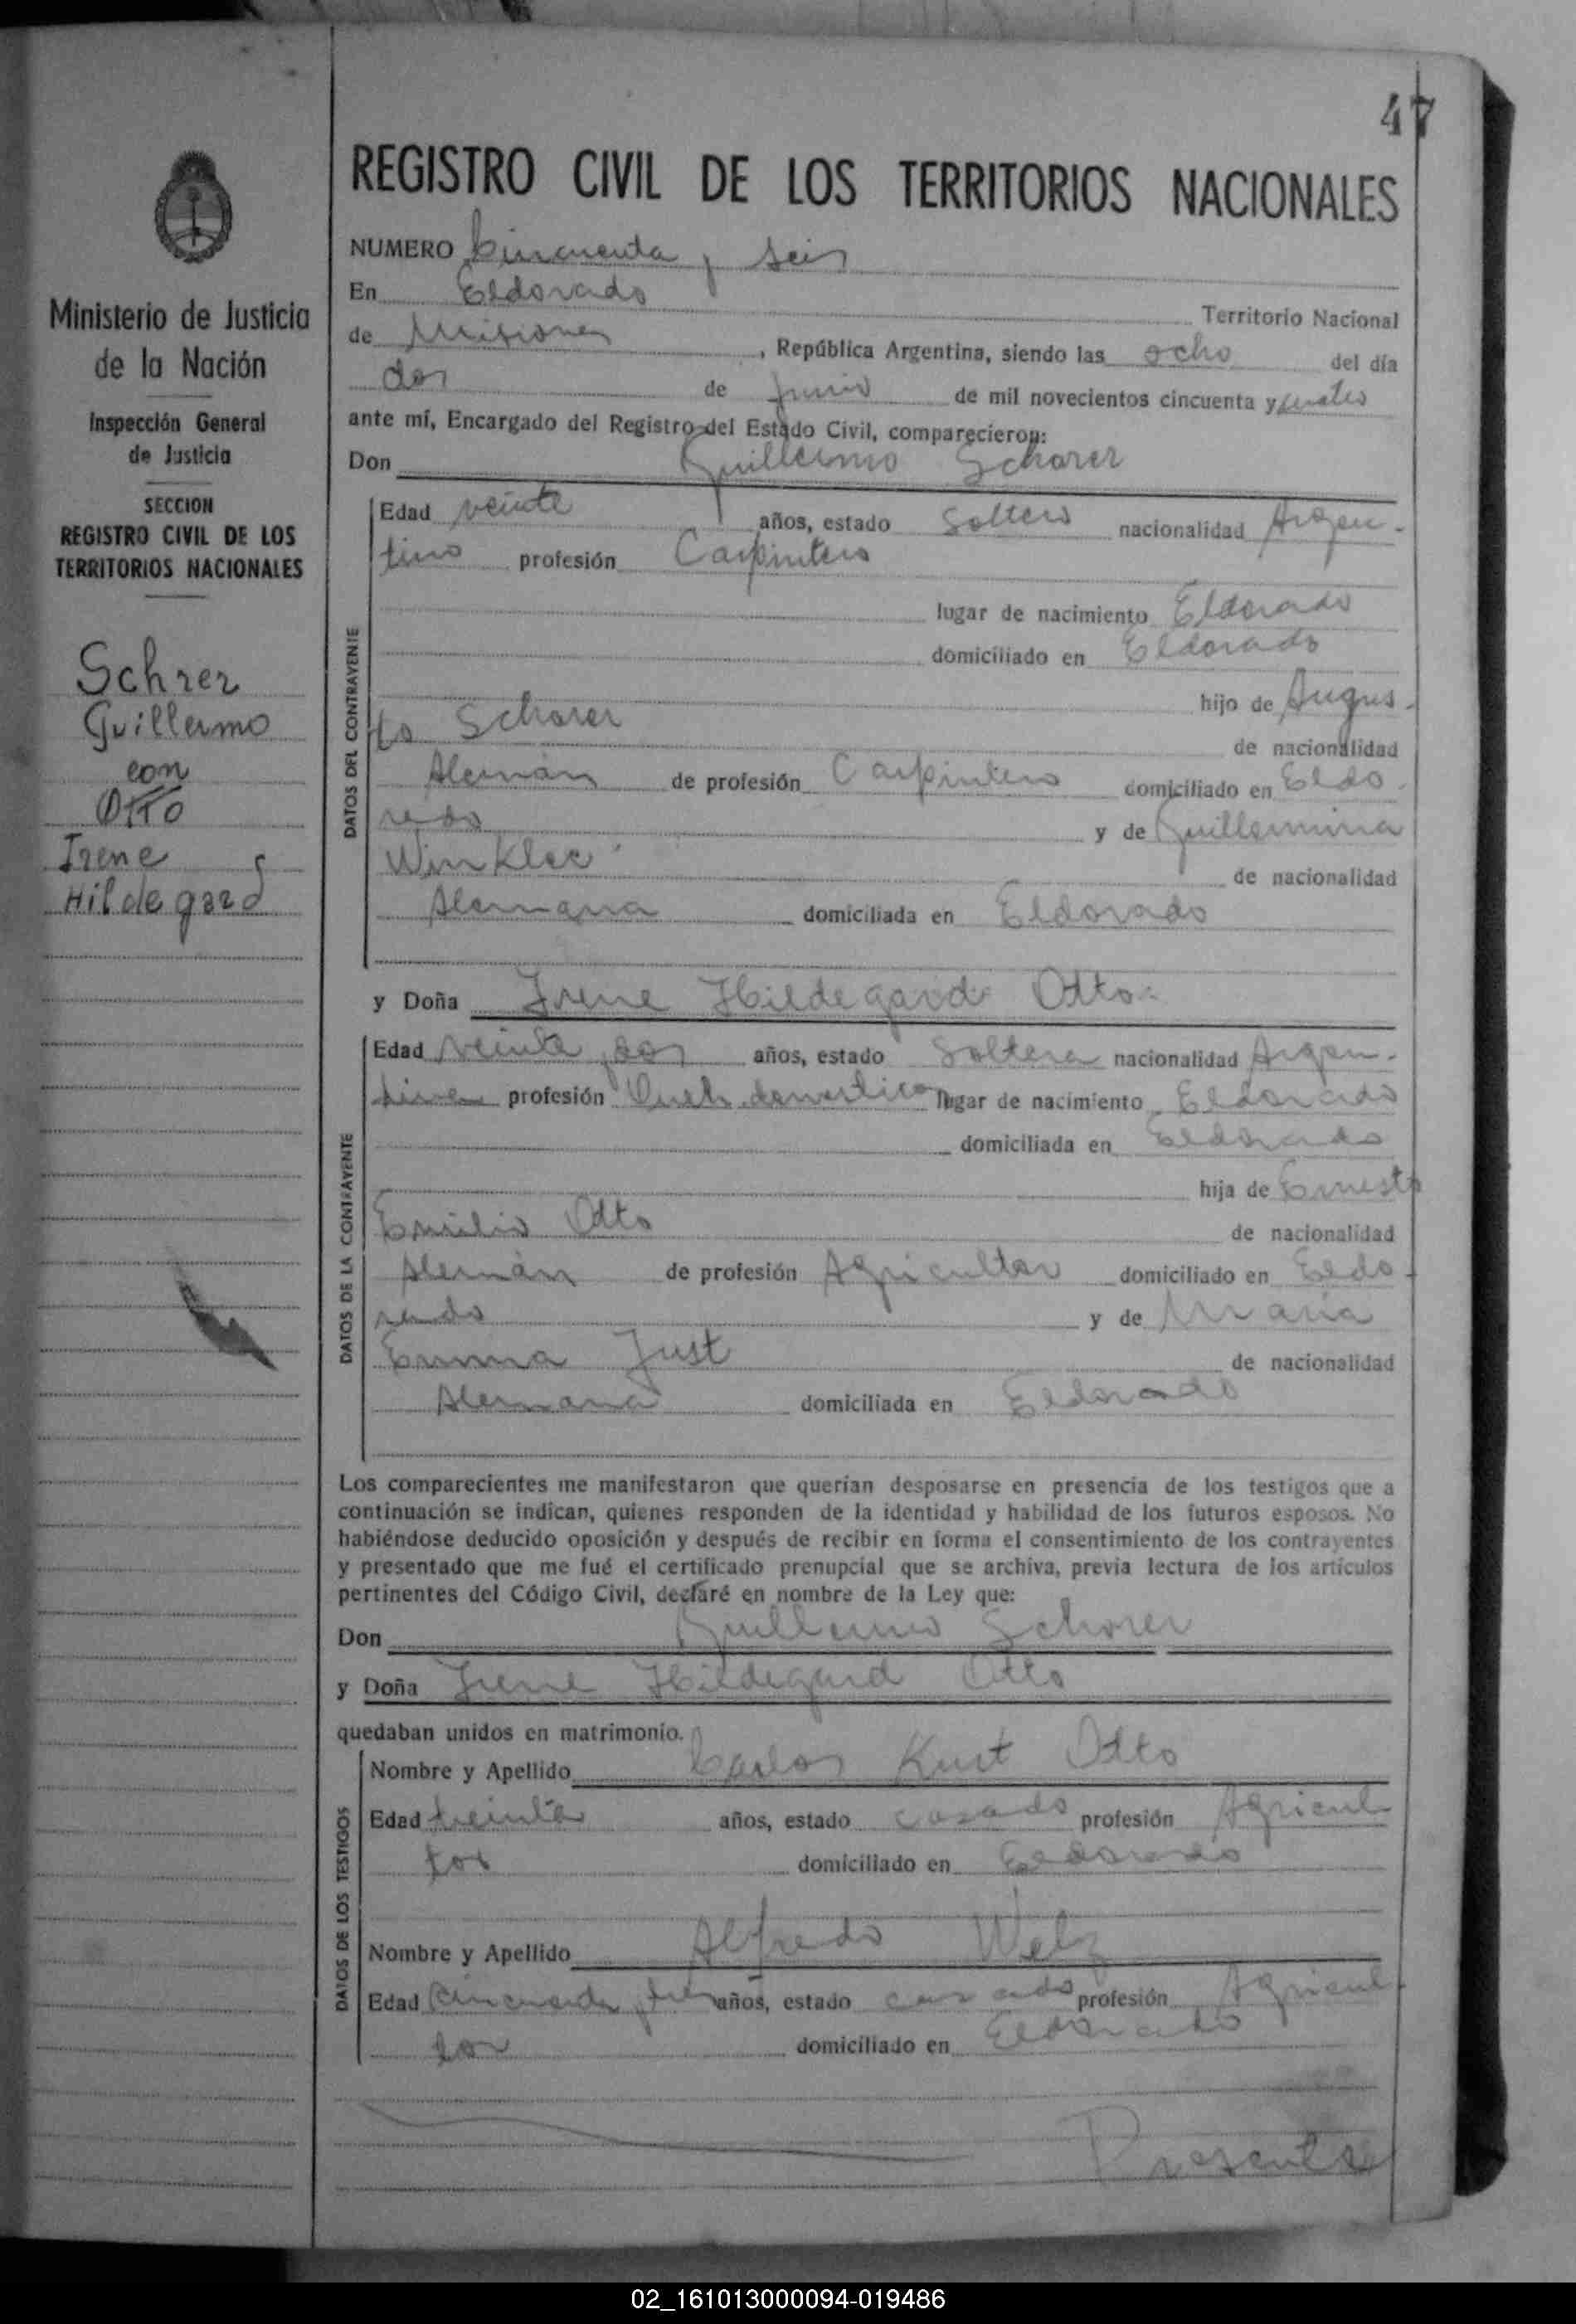 47
REGISTRO CIVIL DE LOS TERRITORIOS NACIONALES
Ministerio de Justicia
de la Nación
Inspección General
de Justicia
SECCION
REGISTRO CIVIL DE LOS
TERRITORIOS NACIONALES
Schrer
Guillermo
con
Otto
Irene
Hildegard
NUMERO Cincuenta y seis
En Eldorado Territorio Nacional
de Misiones, República Argentina, siendo las ocho del día
dos de Junio de mil novecientos cincuenta y cuatro
ante mí, Encargado del Registro del Estado Civil, comparecieron:
Don Guillermo Schorer
DATOS DEL CONTRAYENTE
Edad veinte años, estado Soltero nacionalidad Argen-
tino profesión Carpintero
lugar de nacimiento Eldorado
domiciliado en Eldorado
hijo de Augus-
to Schorer de nacionalidad
Alemán de profesión Carpintero domiciliado en Eldo-
rado y de Guillermina
Winkler de nacionalidad
Alemana domiciliada en Eldorado
y Doña Irene Hildegard Otto
DATOS DE LA CONTRAYENTE
Edad veinte y dos años, estado Soltera nacionalidad Argen-
tina profesión domestico lugar de nacimiento Eldorado
domiciliada en Eldorado
hija de Ernesto
Emilio Otto de nacionalidad
Alemán de profesión Agricultor domiciliado en Eldo-
rado y de Maria
Emma Just de nacionalidad
Alemana domiciliada en Eldorado
Los comparecientes me manifestaron que querían desposarse en presencia de los testigos que a
continuación se indican, quienes responden de la identidad y habilidad de los futuros esposos. No
habiéndose deducido oposición y después de recibir en forma el consentimiento de los contrayentes
y presentado que me fué el certificado prenupcial que se archiva, previa lectura de los artículos
pertinentes del Código Civil, declaré en nombre de la Ley que:
Don Guillermo Schorer
y Doña Irene Hildegard Otto
quedaban unidos en matrimonio.
DATOS DE LOS TESTIGOS
Nombre y Apellido Carlos Kurt Otto
Edad treinta años, estado casado profesión Agricul
tor domiciliado en Eldorado
Nombre y Apellido Alfredo Welz
Edad Cincuenta y tres años, estado casado profesión Agricul-
tor domiciliado en Eldorado
Presente
02_161013000094-019486